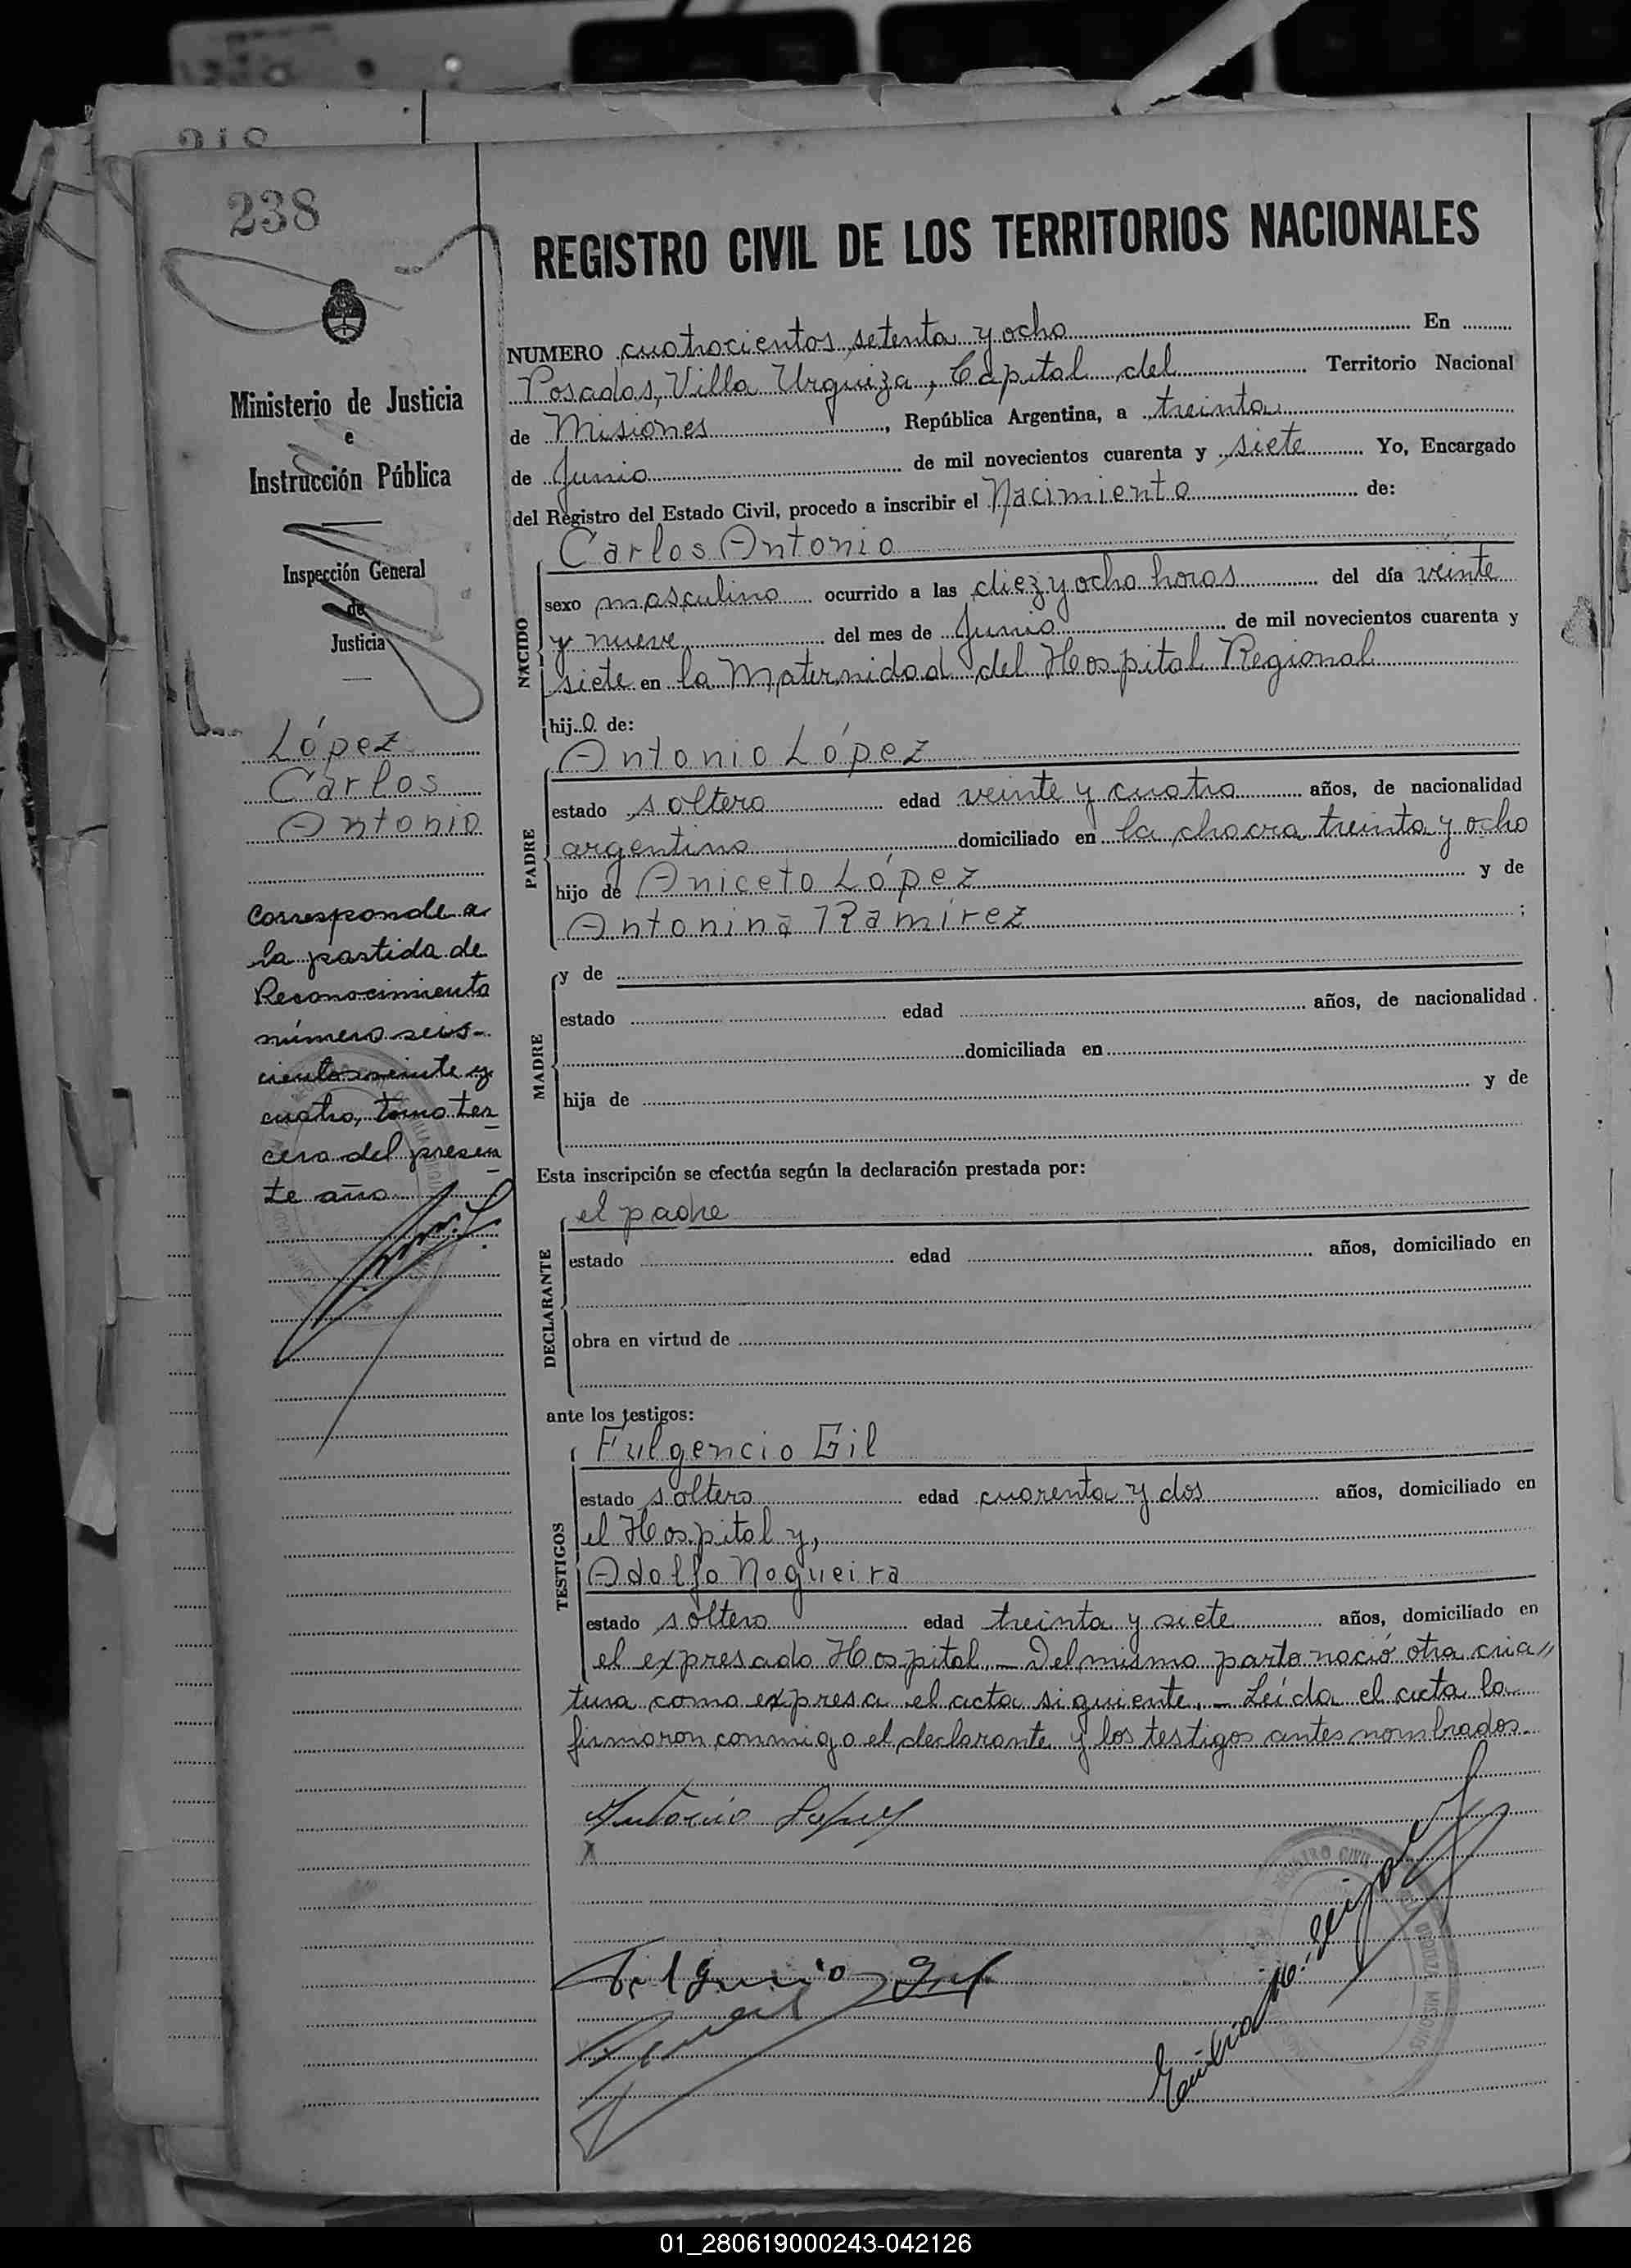 218
238
Ministerio de Justicia
e
Instrucción Pública
Inspección General
de
Justicia
López
Carlos
Antonio
Corresponde a
la partida de
Reconocimiento
número seis-
cientos veinte y
cuatro, tomo ter
cero del presen
te año
REGISTRO CIVIL DE LOS TERRITORIOS NACIONALES
NUMERO cuatrocientos setenta y ocho En
Posadas, Villa Urquiza, Capital del Territorio Nacional
de Misiones, República Argentina, a treinta
de Junio de mil novecientos cuarenta y siete Yo, Encargado
del Registro del Estado Civil, procedo a inscribir el Nacimiento de:
NACIDO
Carlos Antonio
sexo masculino ocurrido a las diez y ocho horas del día veinte
y nueve del mes de Junio de mil novecientos cuarenta y
siete en la Maternidad del Hospital Regional
hijo de:
PADRE
Antonio López
estado soltero edad veinte y cuatro años, de nacionalidad
argentino domiciliado en la chacra treinta y ocho
hijo de Aniceto López y de
Antonina Ramírez ;
MADRE
y de
estado edad años, de nacionalidad
domiciliada en
hija de y de
Esta inscripción se efectúa según la declaración prestada por:
DECLARANTE
el padre
estado edad años, domiciliado en
obra en virtud de
ante los testigos:
TESTIGOS
Fulgencio Gil
estado soltero edad cuarenta y dos años, domiciliado en
el Hospital y,
Adolfo Nogueira
estado soltero edad treinta y siete años, domiciliado en
el expresado Hospital.- Del mismo parto nació otra cria//
tura como expresa el acta siguiente.- Leída el acta la
firmaron conmigo el declarante y los testigos antes nombrados.-
Antonio Lopez
X
REGISTRO CIVIL
VILLA URQUIZA MISIONES
01_280619000243-042126